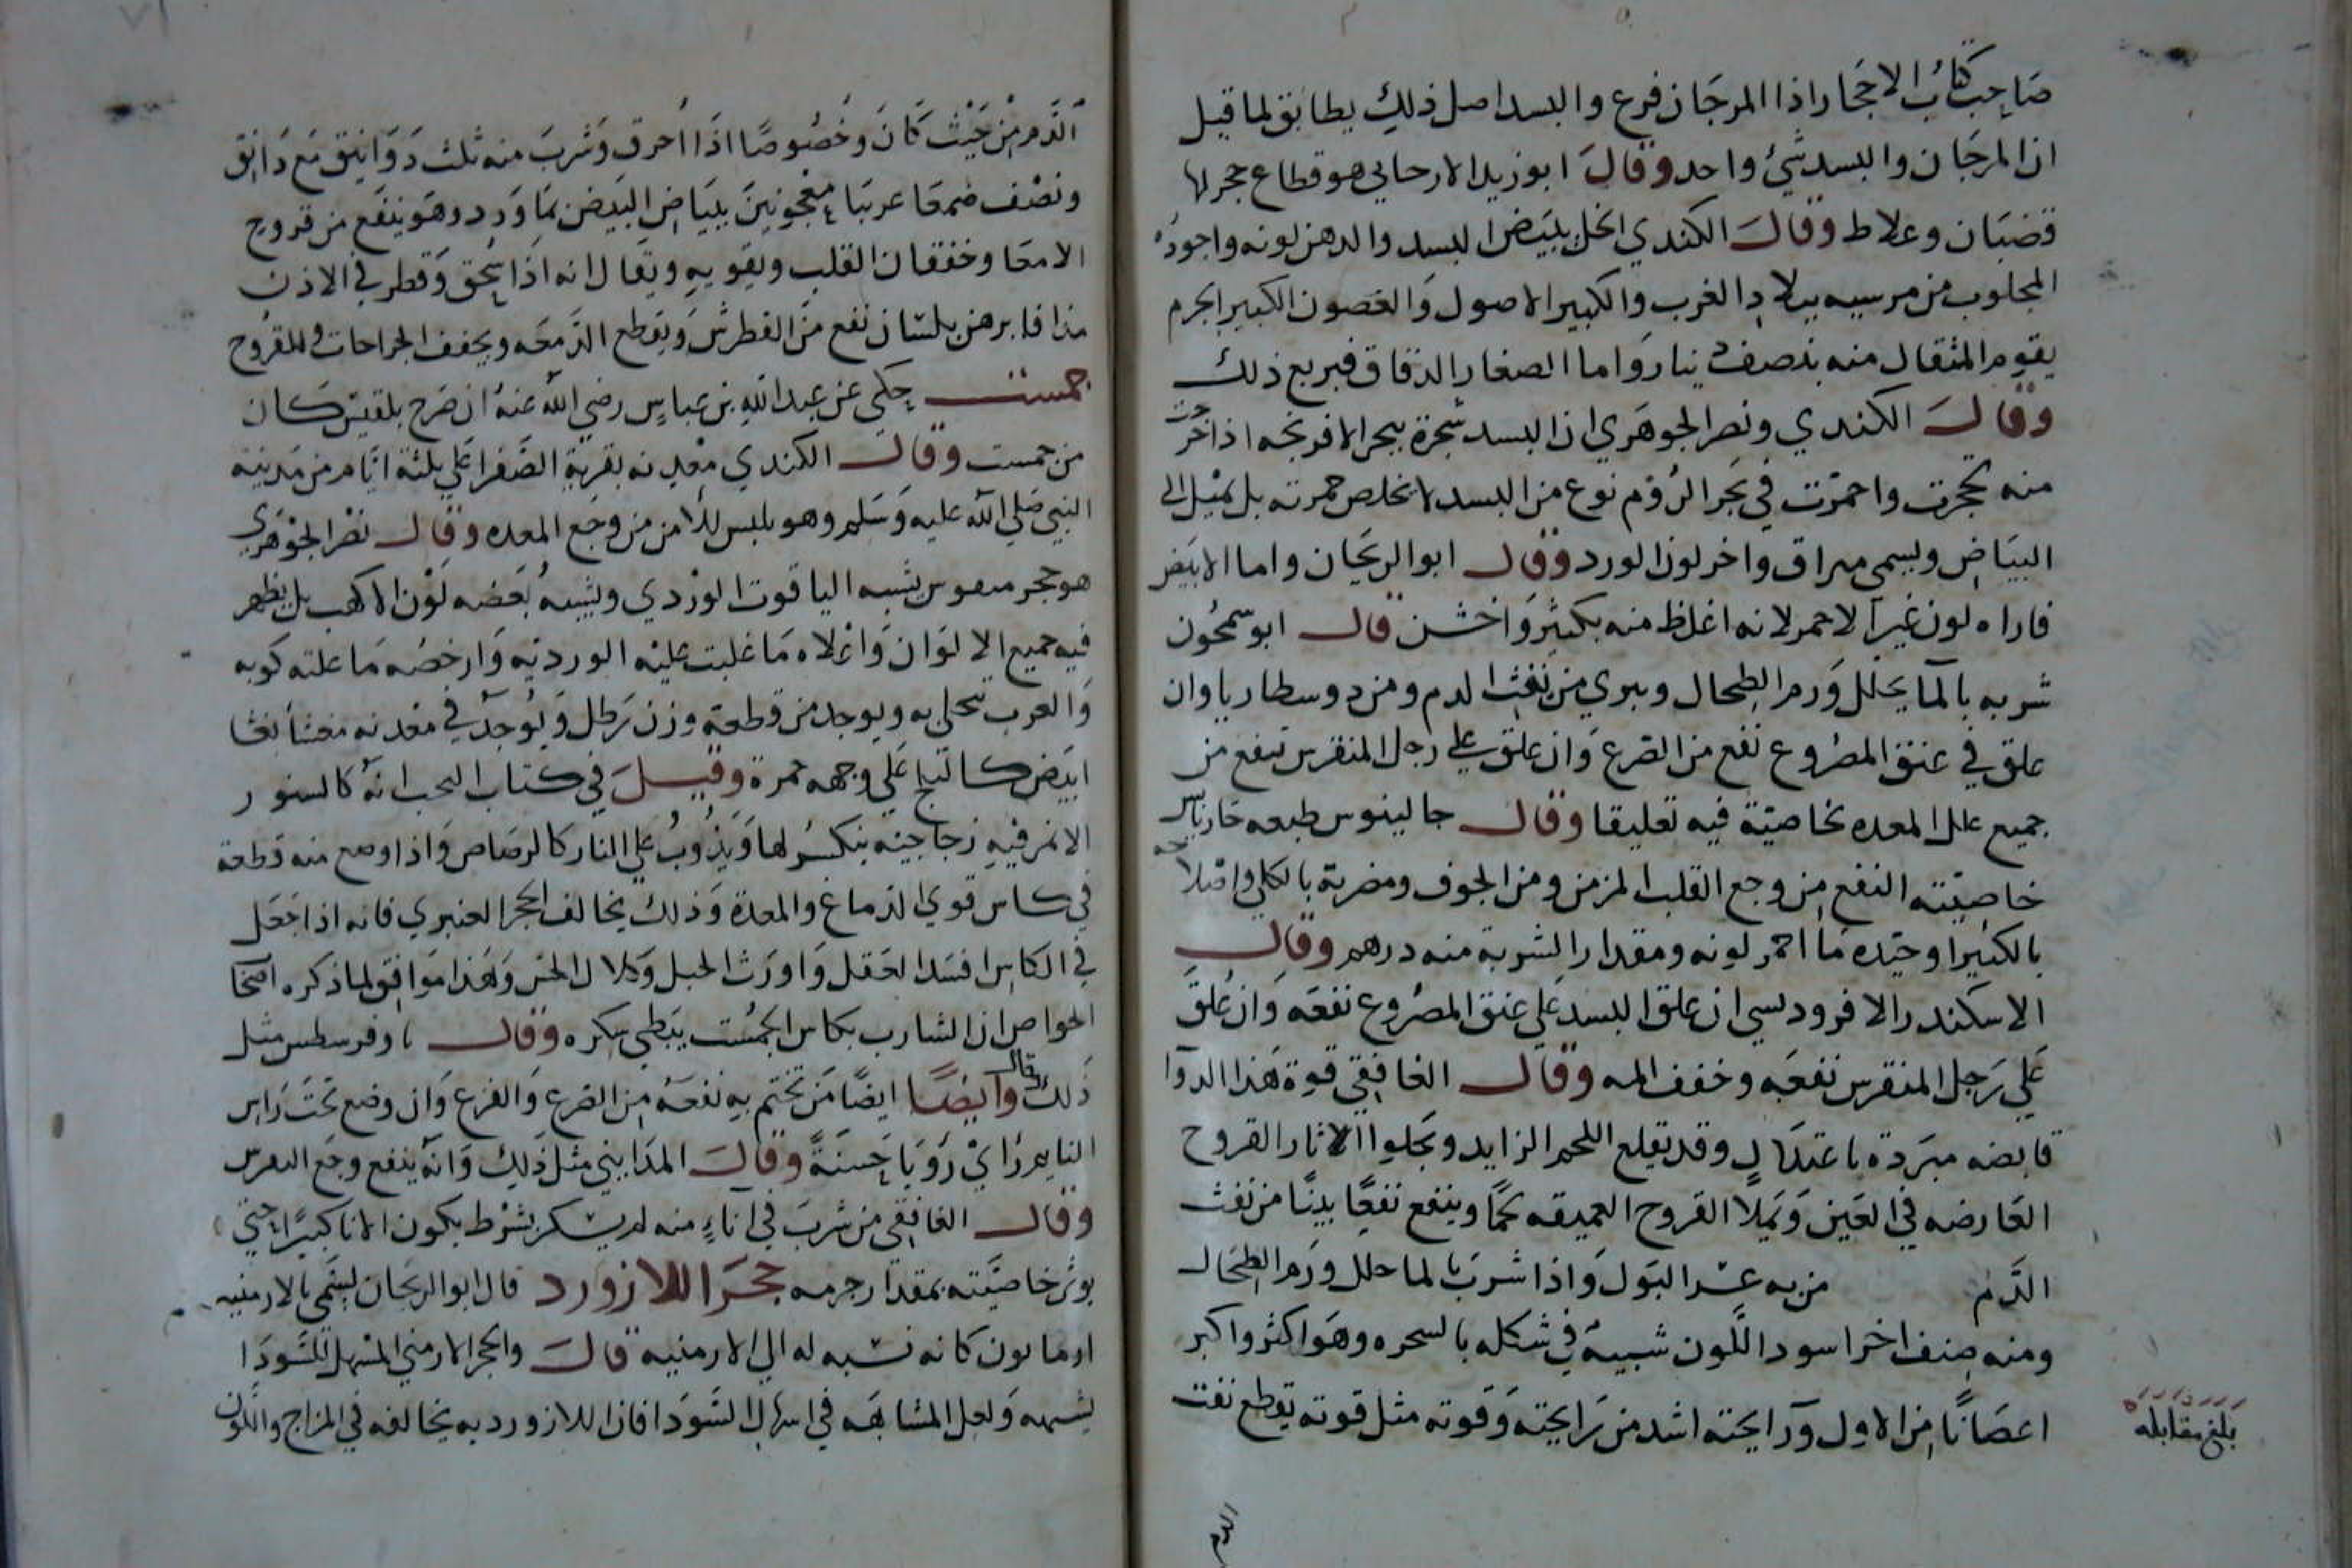 صاحب كتاب الاحجار اذا المرجان فرع والبسد اصل ذلك يطابق لما قيل
ان المرجان والبسد شئ واحد وقال ابو زيد الارحاني هو قطاع حجر لها
قضبان وغلاط وقال الكندي الخل يبيض البسد والدهن لونه واجوده
المجلوب من مرسيه ببلاد الغرب والكبير الاصول والغصون الكبير الجرم
يقوم المثقال منه بنصف دينار واما الصغار الدقاق فبربع ذلك
وقال الكندي ونصر الجوهري ان البسد شجرة ببحر الافرنجه اذا خرجت
منه تحجرت واحمرت في بحر الروم نوع من البسد لا تخلص حمرته بل تميل الى
البياض ويسمى مراق واخر لون الورد وقال ابو الريحان واما الابيض
فاراه لون غير الاحمر لانه اغلظ منه بكثير واخشن قال ابو سمحون
شربه بالما يحلل ورم الطحال ويبري من نفث الدم ومن دوسطاريا وان
علق في عنق المصروع نفع من الصرع وان علق على رجل المنقرس نفع من
جميع علل المعده بخاصية فيه تعليقا وقال جالينوس طبعه حار يابس
خاصيته النفع من وجع القلب المزمن ومن الجوف ومضرته بالكلى واصلاحه
بالكثيرا وجيده ما احمر لونه ومقدار الشربة منه درهم وقال
الاسكندر الافرودسي ان علق البسد على عنق المصروع نفعه وان علق
على رجل المنقرس نفعه وخفف المه وقال الغافقي قوة هذا الدوآ
قابضه مبردة باعتدال وقد يقلع اللحم الزايد ويجلوا الاثار القروح
العارضه في العين ويملا القروح العميقه لحما وينفع نفعا بينا من نفث
الدم من به عسر البول واذا شرب بالما حلل ورم الطحال
ومنه صنف اخر اسود اللون شبيه في شكله بالسحره وهو اكثر واكبر
اعصانا من الاول ورايحته اشد من رايحته وقوته مثل قوته يقطع نفت
بلغ مقابله
الدم
الدم من حيث كان وخصوصا اذا احرق وشرب منه ثلث دوانيق مع دانق
ونصف صمغا عربيا معجونين ببياض البيض بما ورد وهو ينفع من قروح
الامعا وخفقان القلب ويقويه ويقال انه اذا سحق وقطر في الاذن
مذافا بدهن بلسان نفع من الطرش ويقطع الدمعه ويجفف الجراحات والقروح
جمست حكى عن عبد الله بن عباس رضي الله عنه ان صرح بلقيس كان
من جمست وقال الكندي معدنه بقرية الصفرا على ثلثة ايام من مدينة
النبي صلى الله عليه وسلم وهو يلبس للامن من وجع المعده وقال نصر الجوهري
هو حجر يشبه الياقوت الوردي ويشبه بعضه لون الاكهب بل يظهر
فيه جميع الالوان واغلاه ما غلبت عليه الورديه وارخصه ما علته كوبه
والعرب تتحلى به ويوجد من قطعة وزن رطل ويوجد في معدنه مغشا بغشا
ابيض كالثلج على وجهه حمرة وقيل في كتاب النحب انه كالسنور
الانمر فيه زجاجيه ينكسر لها ويذوب على النار كالرصاص واذا وضع منه قطعة
في كاس قوي الدماغ والمعدة وذلك يخالف الحجر العنبري فانه اذا جعل
في الكاس افسد العقل واورث الخبل وكلال الحس وهذا موافق لما ذكره اصحا
الخواص ان الشارب بكاس الجمست يبطي سكره وقال تاوفرسطس مثل
ذلك وقال وايضا ايضا من تختم به نفعه من الصرع والفزع وان وضع تحت راس
النايم راى رؤيا حسنة وقال المدايني مثل ذلك وانه ينفع وجع النقرس
وقال الغافقي من شرب في اناء منه لم يسكر بشرط يكون الانا كبيرا حتى
يوثر خاصيته بمقدار جرمه حجر اللازورد قال ابو الريحان يسمى بالارمنيه
ارمانون كانه نسبه له الى الارمنيه قال والحجر الارمني المسهل للسودا
يشبهه ولعل المشابهه في اسهال السودا فان اللازورد به يخالفه في المزاج واللون